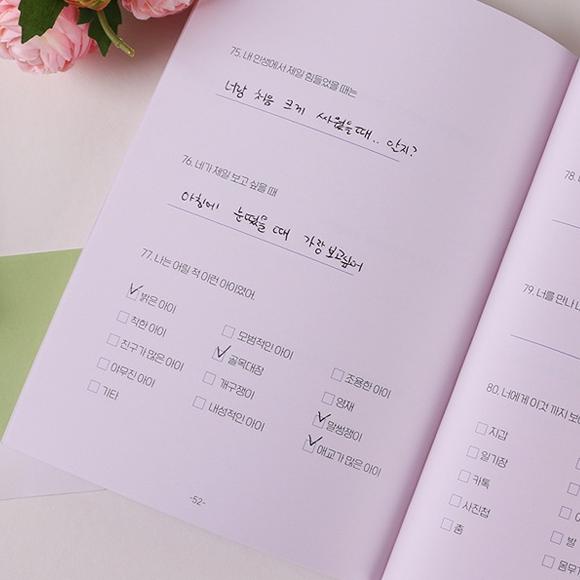 75. 내 인생에서 제일 힘들었을 때는
너랑 처음 크게 싸웠을때.. 알지?
76. 네가 제일 보고 싶을 때
아침에 눈떴을 때 가장 보고싶어
77. 나는 어릴 적 이런 아이였어.
밝은 아이
착한 아이
친구가 많은 아이
야무진 아이
기타
모범적인 아이
골목대장
개구쟁이
내성적인 아이
조용한 아이
영재
말썽쟁이
애교가 많은 아이
-52-
78.
79. 너를 만나
80. 너에게 이것 까지 보여
지갑
일기장
카톡
사진첩
춤
방
몸무게